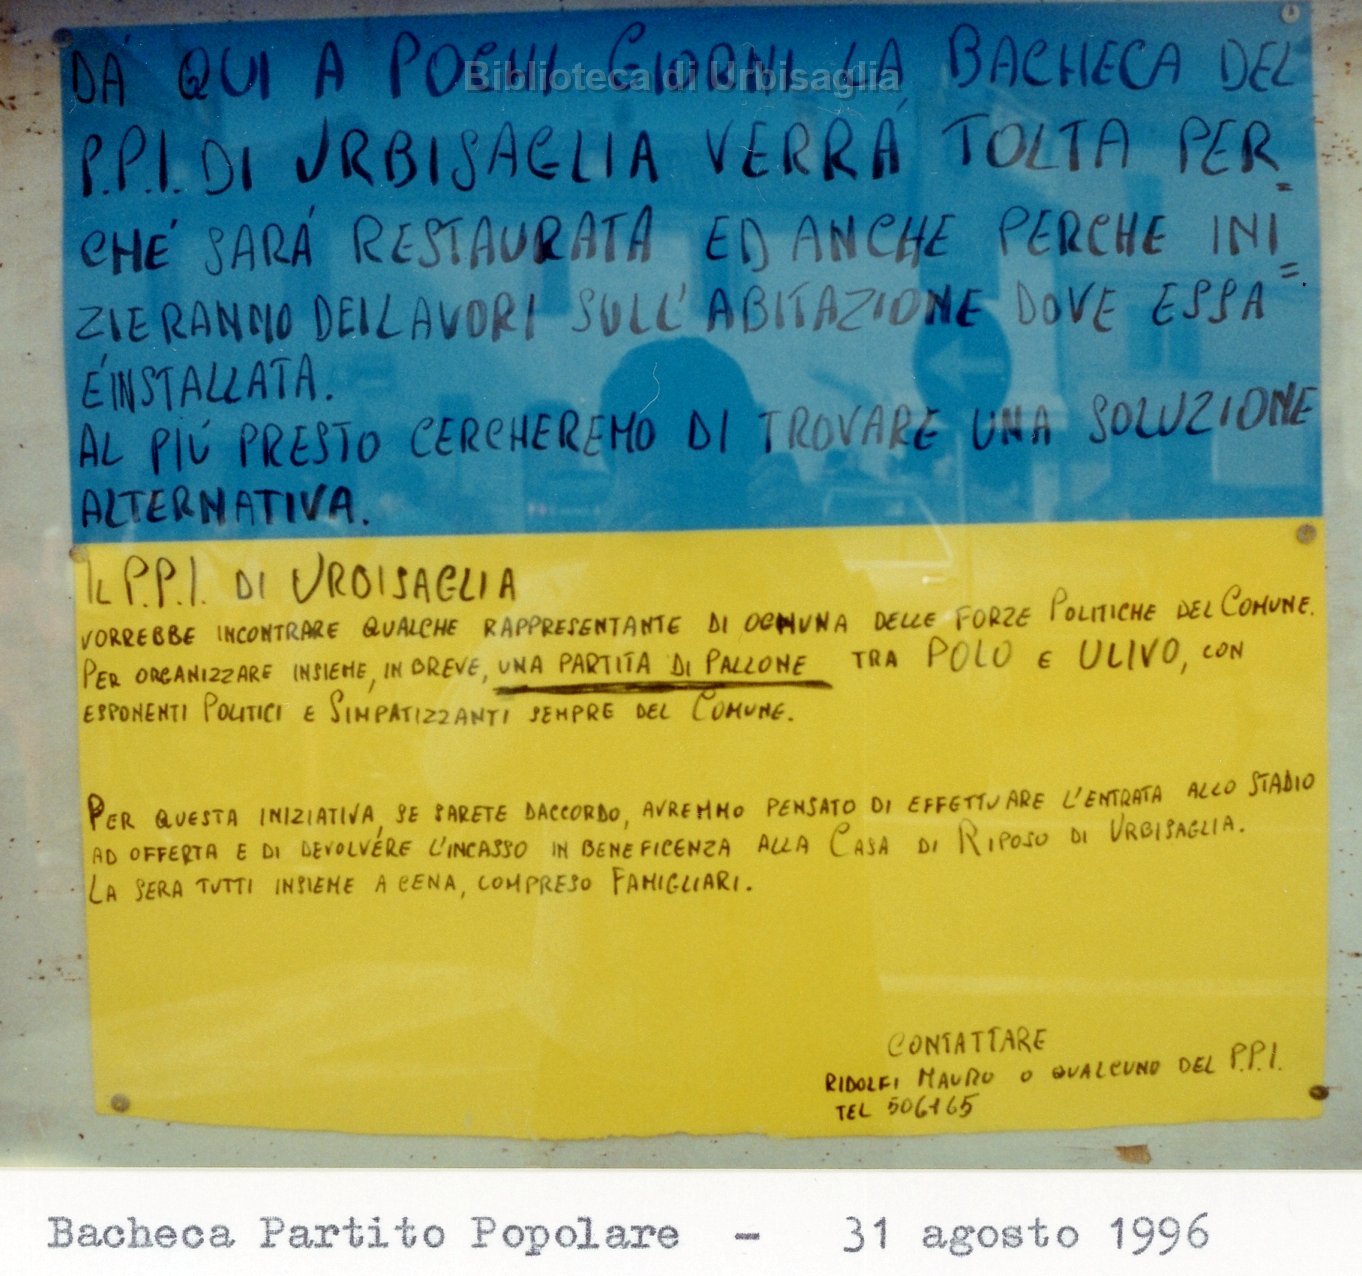 DÁ QUI A POCHI GIORNI LA BACHECA DEL
Biblioteca di Urbisaglia
P.P.I. DI URBISAGLIA VERRÁ TOLTA PER=
CHÉ SARÁ RESTAURATA ED ANCHE PERCHE INI=
ZIERANNO DEI LAVORI SULL'ABITAZIONE DOVE ESSA
É INSTALLATA.
AL PIÚ PRESTO CERCHEREMO DI TROVARE UNA SOLUZIONE
ALTERNATIVA.
IL P.P.I. DI URBISAGLIA
VORREBBE INCONTRARE QUALCHE RAPPRESENTANTE DI OGNUNA DELLE FORZE POLITICHE DEL COMUNE.
PER ORGANIZZARE INSIEME, IN BREVE, UNA PARTITA DI PALLONE TRA POLO E ULIVO, CON
ESPONENTI POLITICI E SIMPATIZZANTI SEMPRE DEL COMUNE.
PER QUESTA INIZIATIVA, SE SARETE DACCORDO, AVREMMO PENSATO DI EFFETTUARE L'ENTRATA ALLO STADIO
AD OFFERTA E DI DEVOLVÉRE L'INCASSO IN BENEFICENZA ALLA CASA DI RIPOSO DI URBISAGLIA.
LA SERA TUTTI INSIEME A CENA, COMPRESO FAMIGLIARI.
CONTATTARE
RIDOLFI MAURO O QUALCUNO DEL P.P.I.
TEL 506165
Bacheca Partito Popolare - 31 agosto 1996